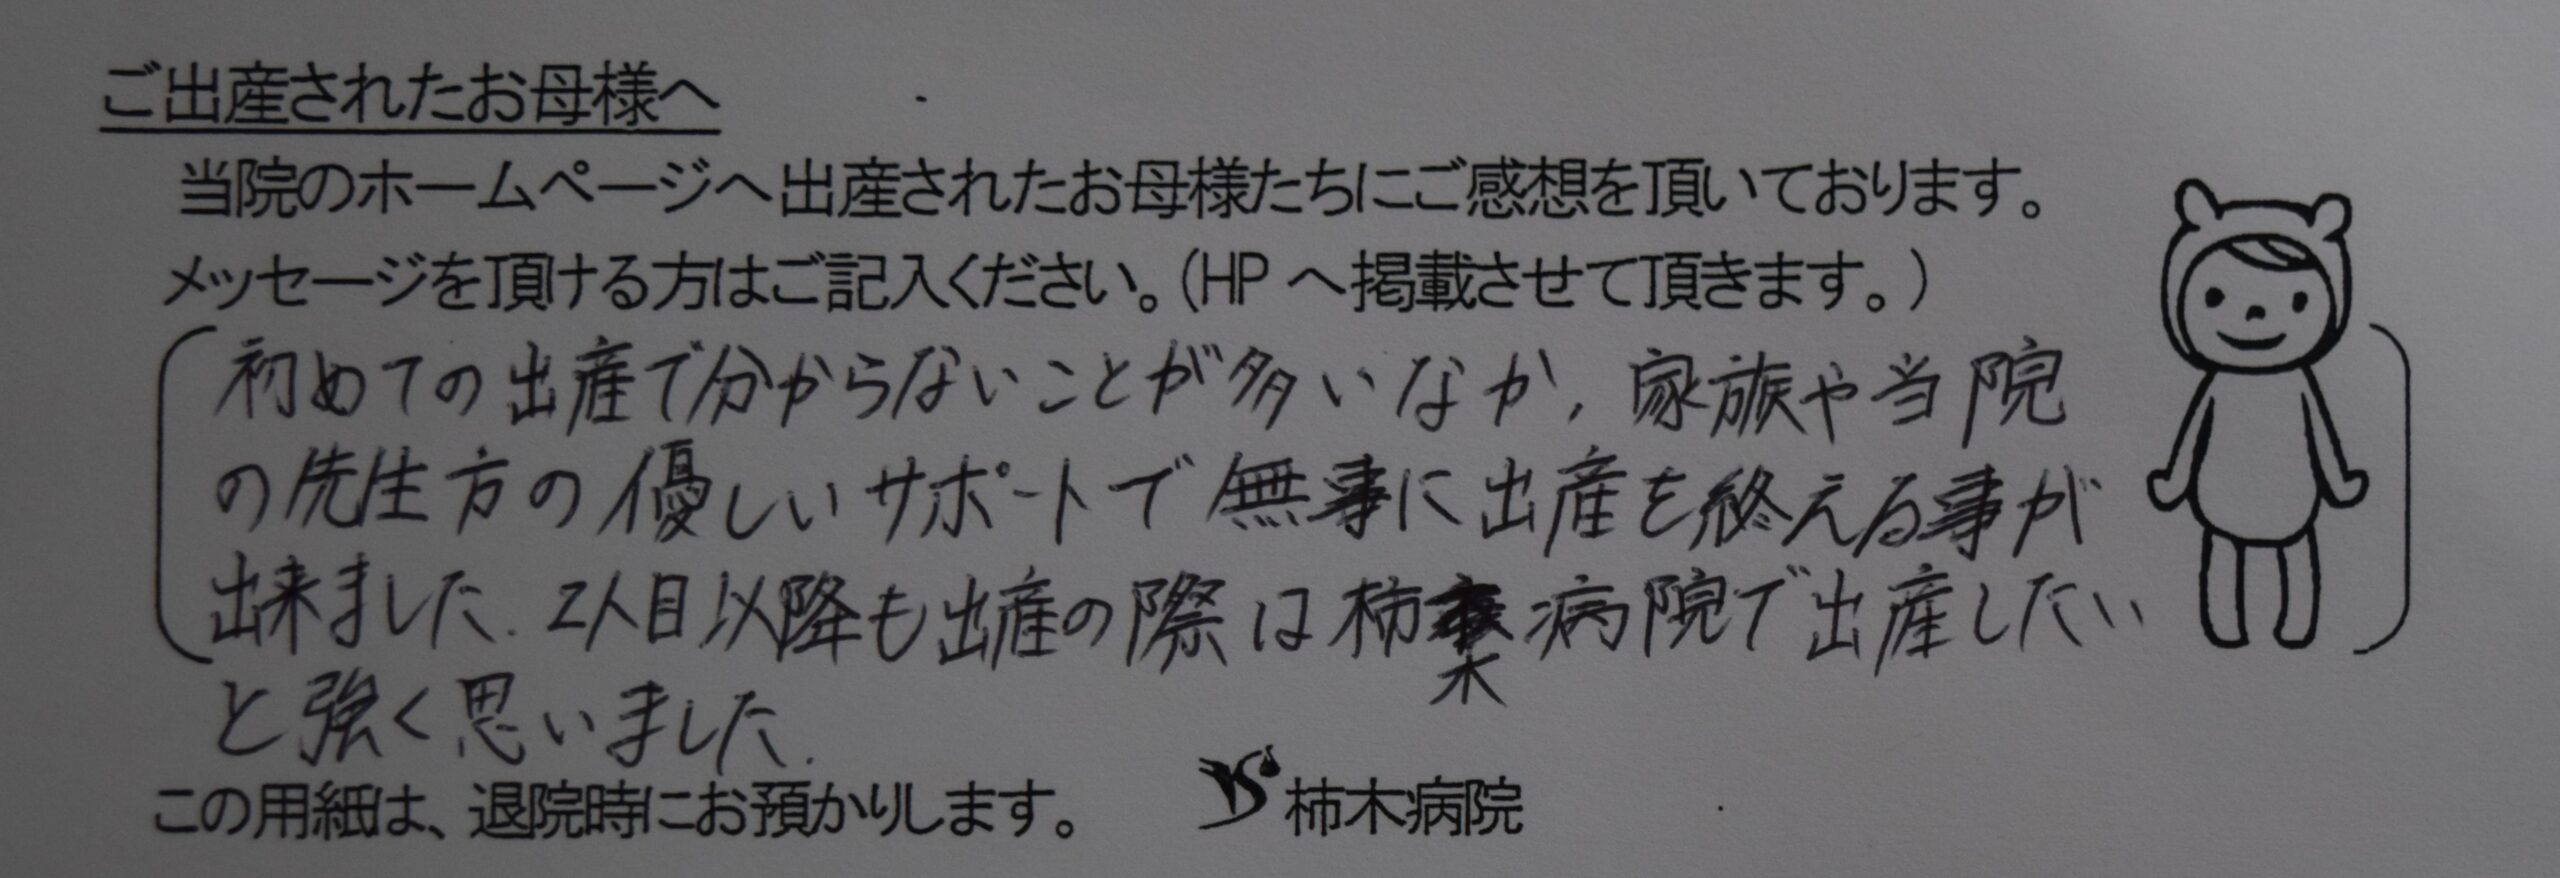 ご出産されたお母様へ
当院のホームページへ出産されたお母様たちにご感想を頂いております。
メッセージを頂ける方はご記入ください。(HP へ掲載させて頂きます。)
初めての出産で分からないことが多いなか、家族や当院
の先生方の優しいサポートで無事に出産を終える事が
出来ました。2人目以降も出産の際は柿木病院で出産したい
と強く思いました。
この用紙は、退院時にお預かりします。 柿木病院